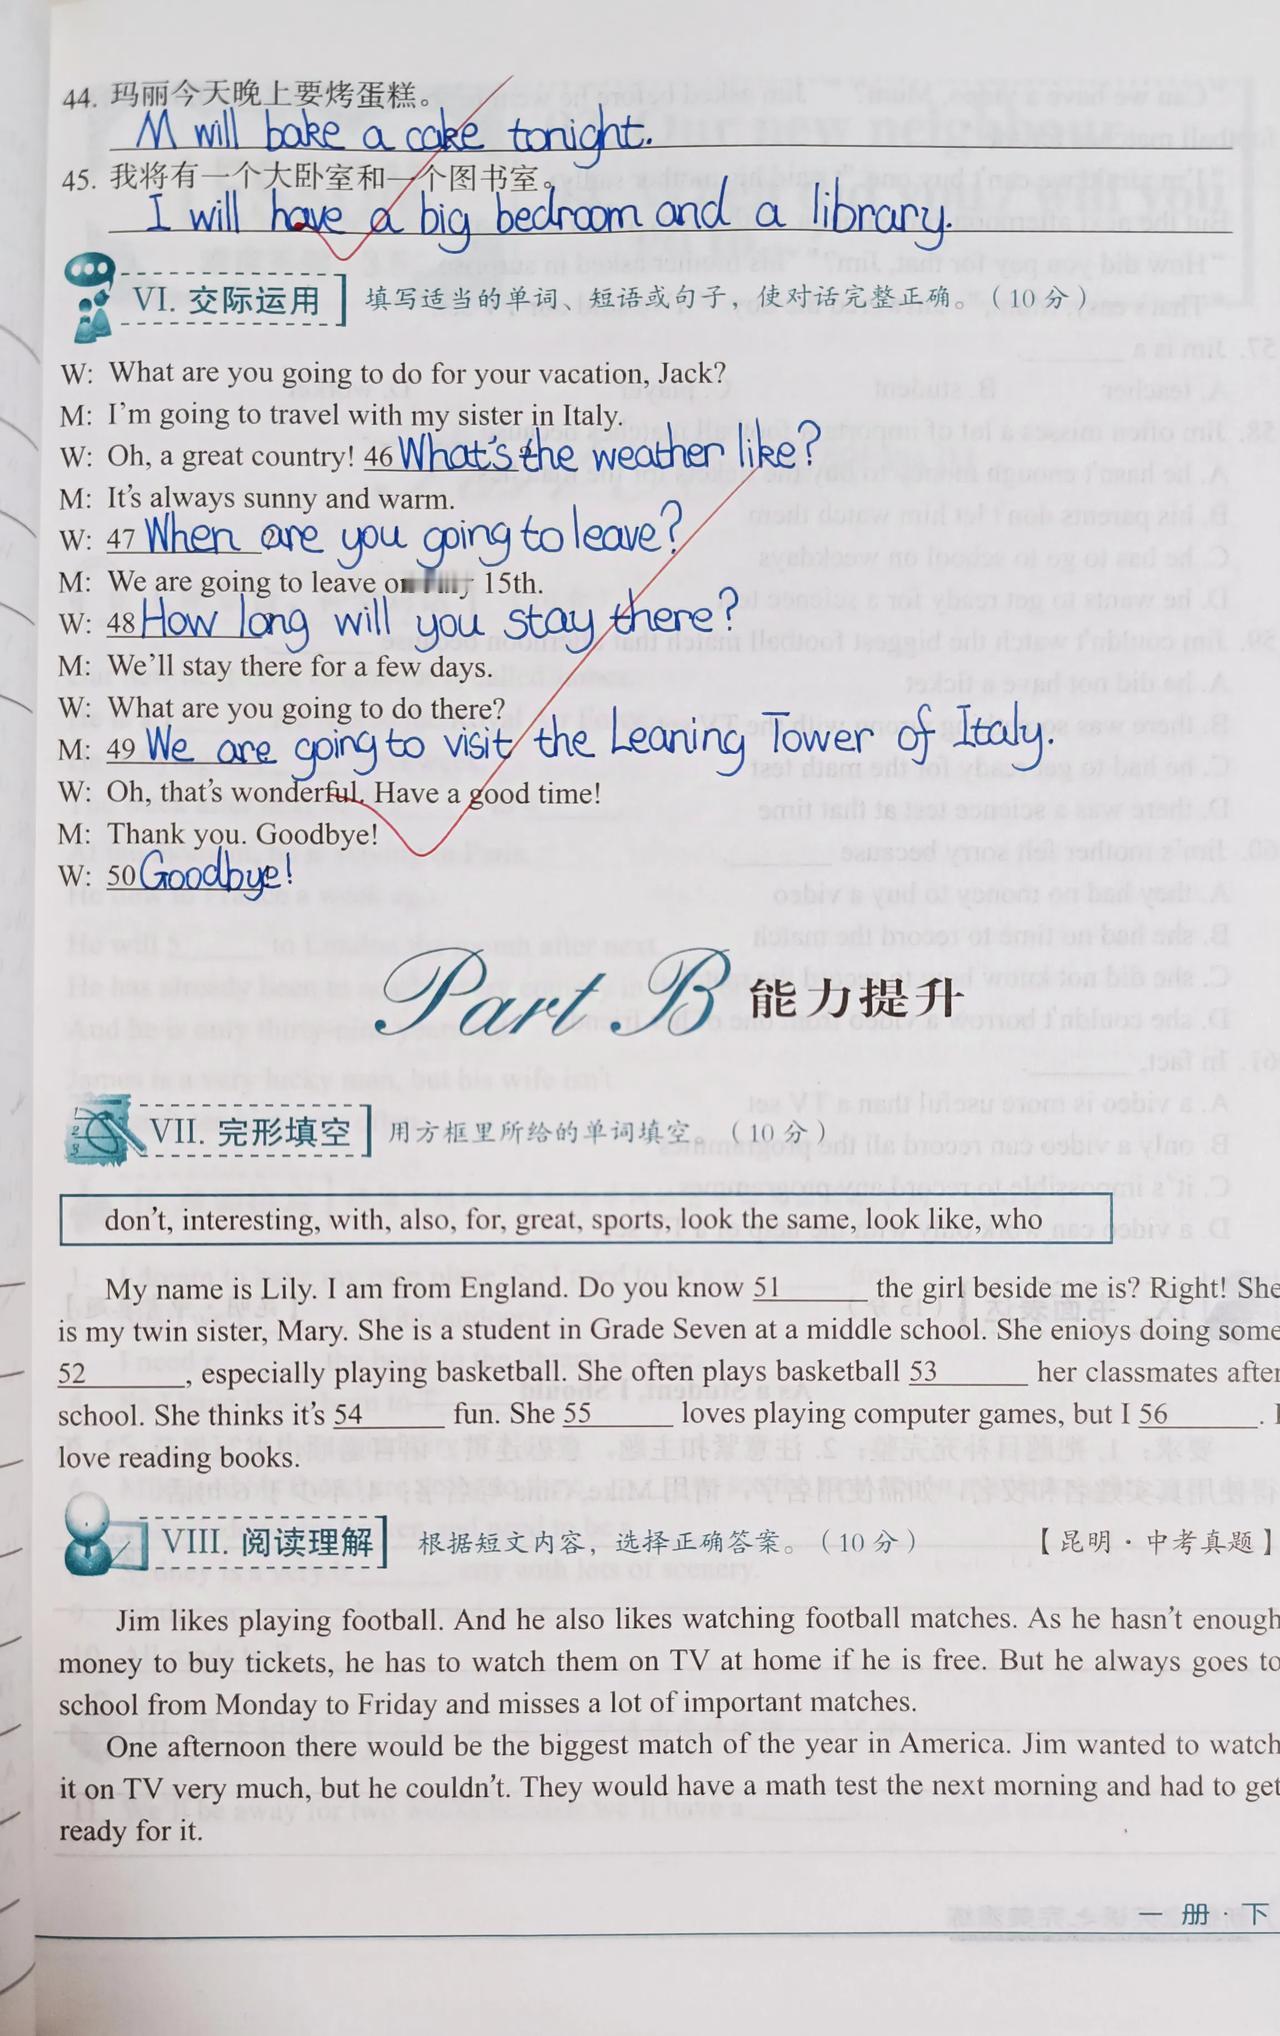 44. 玛丽今天晚上要烤蛋糕。
M will bake a cake tonight.
45. 我将有一个大卧室和一个图书室。
I will have a big bedroom and a library.
VI. 交际运用 填写适当的单词、短语或句子，使对话完整正确。（10分）
W: What are you going to do for your vacation, Jack?
M: I'm going to travel with my sister in Italy.
W: Oh, a great country! 46 What's the weather like?
M: It's always sunny and warm.
W: 47 When are you going to leave?
M: We are going to leave on 15th.
W: 48 How long will you stay there?
M: We'll stay there for a few days.
W: What are you going to do there?
M: 49 We are going to visit the Leaning Tower of Italy.
W: Oh, that's wonderful. Have a good time!
M: Thank you. Goodbye!
W: 50 Goodbye!
Part B 能力提升
VII. 完形填空 用方框里所给的单词填空。（10分）
don't, interesting, with, also, for, great, sports, look the same, look like, who
My name is Lily. I am from England. Do you know 51 the girl beside me is? Right! She
is my twin sister, Mary. She is a student in Grade Seven at a middle school. She enjoys doing some
52 , especially playing basketball. She often plays basketball 53 her classmates after
school. She thinks it's 54 fun. She 55 loves playing computer games, but I 56 . I
love reading books.
VIII. 阅读理解 根据短文内容，选择正确答案。（10分） 【昆明·中考真题】
Jim likes playing football. And he also likes watching football matches. As he hasn't enough
money to buy tickets, he has to watch them on TV at home if he is free. But he always goes to
school from Monday to Friday and misses a lot of important matches.
One afternoon there would be the biggest match of the year in America. Jim wanted to watch
it on TV very much, but he couldn't. They would have a math test the next morning and had to get
ready for it.
一册·下